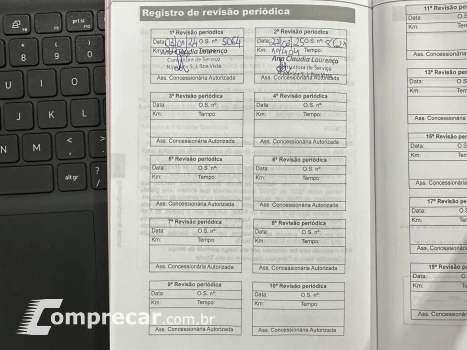 Registro de revisão periódica
1ª Revisão periódica
Data: O.S. nº: 5064
Km: Tempo:
Ana Claudia Lourenço
Consultora de Serviço
Ass. Concessionária Autorizada
2ª Revisão periódica
Data: O.S. nº:
Km:
Ana Claudia Lourenço
de Serviço
Ass. Concessionária Autorizada
3ª Revisão periódica
Data: O.S. nº:
Km: Tempo:
Ass. Concessionária Autorizada
4ª Revisão periódica
Data: O.S. nº:
Km: Tempo:
Ass. Concessionária Autorizada
5ª Revisão periódica
Data: O.S. nº:
Km: Tempo:
Ass. Concessionária Autorizada
6ª Revisão periódica
Data: O.S. nº:
Km: Tempo:
Ass. Concessionária Autorizada
7ª Revisão periódica
Data: O.S. nº:
Km: Tempo:
Ass. Concessionária Autorizada
8ª Revisão periódica
Data: O.S. nº:
Km: Tempo:
Ass. Concessionária Autorizada
9ª Revisão periódica
Data: O.S. nº:
Km: Tempo:
Ass. Concessionária Autorizada
10ª Revisão periódica
Data: O.S. nº:
Km: Tempo:
Ass. Concessionária Autorizada
11ª Revisão
Data:
Km:
Ass. Conces
13ª Revisão
Data:
Km:
Ass. Conces
15ª Revisão
Data:
Km:
17ª Revisão
Data:
Km:
19ª Revisão
Data:
Km:
prt sc
* 8
( 9
) 0
U
I
O
P
J
K
L
N
M
alt gr
Comprecar.com.br